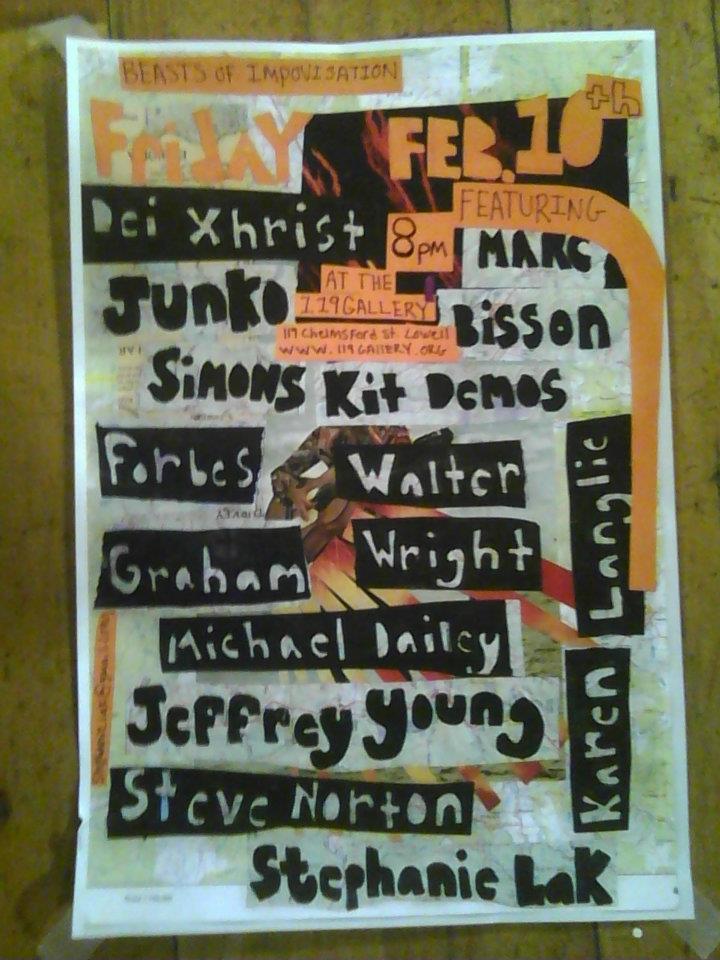 BEASTS OF IMPOVISATION
FRIDAY FEB. 10th
FEATURING
Dei Xhrist
8pm
MARC
BISSON
JUNKO
SIMONS
AT THE
119GALLERY
119 Chelmsford St. Lowell
WWW.119GALLERY.ORG
Kit Demos
Forbes
Graham
Walter
Wright
Karen Langlie
Michael Dailey
Jeffrey Young
Steve Norton
Stephanie Lak